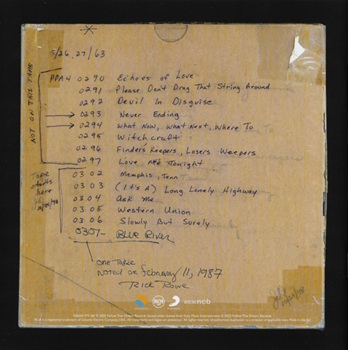 5/26,27/63
NOT ON THIS TAPE
PPA4 0290 Echoes of Love
0291 Please Don't Drag That String Around
0292 Devil In Disguise
0293 Never Ending
0294 What Now, What Next, Where To
0295 Witchcraft
0296 Finders Keepers, Losers Weepers
0297 Love Me Tonight
Tape starts here
0302 Memphis, Tenn
0303 (It's A) Long Lonely Highway
0304 Ask Me
0305 Western Union
0306 Slowly But Surely
0307- Blue River
ONE TAKE
NOTED ON February 11, 1987
Rick Rowe